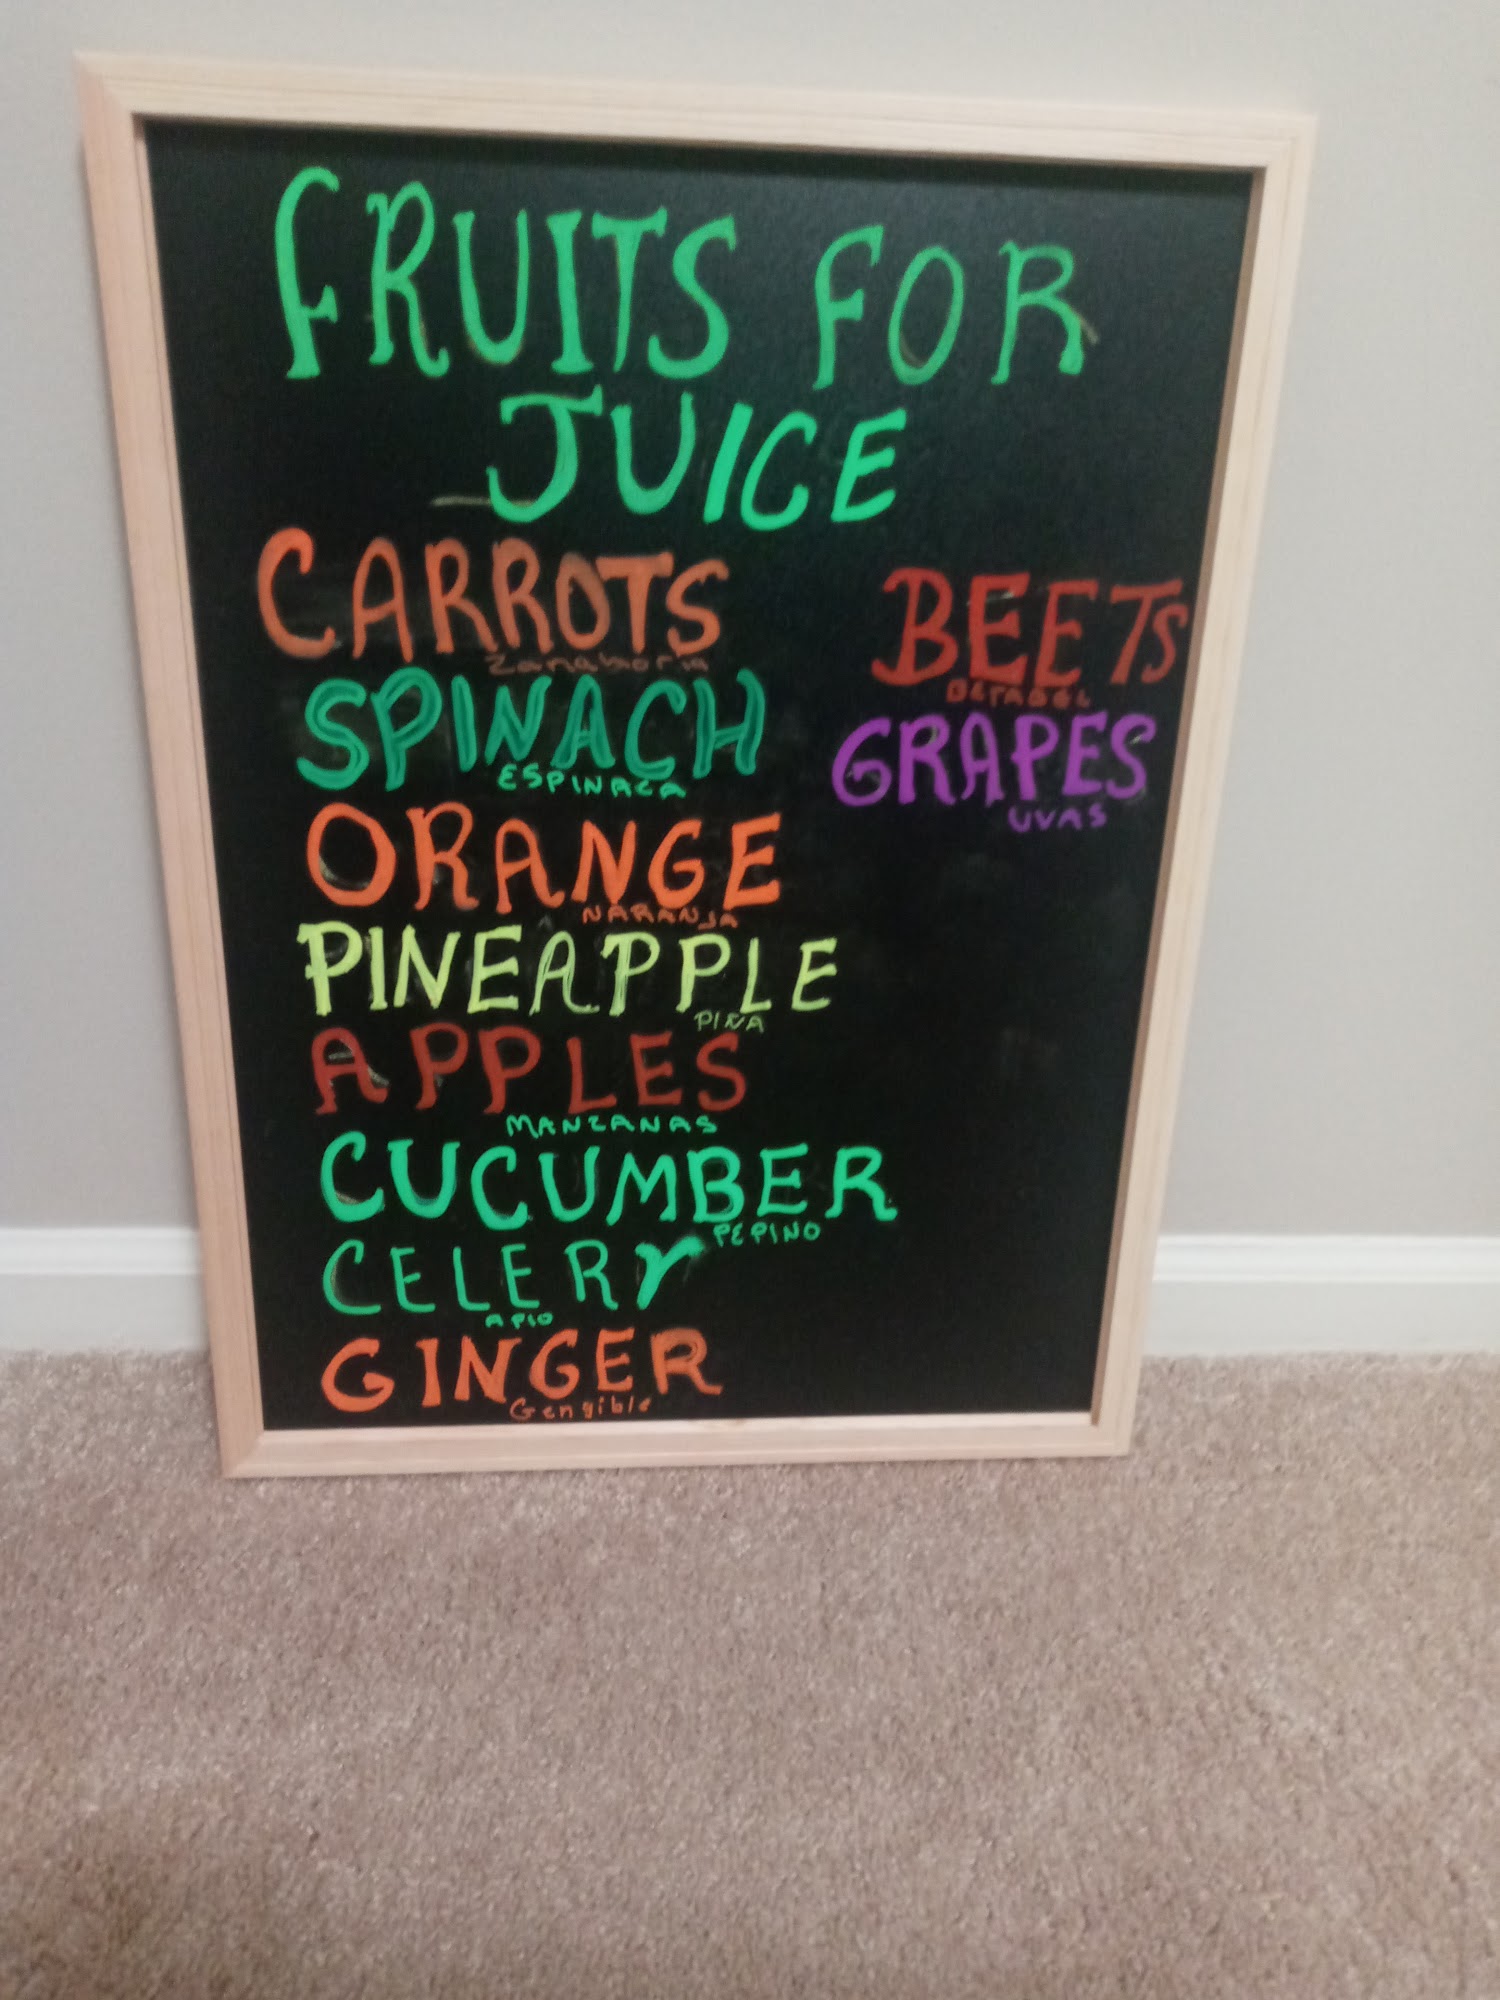 FRUITS FOR
JUICE
CARROTS
Zanahoria
SPINACH
ESPINACA
ORANGE
NARANJA
PINEAPPLE
PIÑA
APPLES
MANZANAS
CUCUMBER
PEPINO
CELERY
APIO
GINGER
Gengible
BEETS
BETABEL
GRAPES
UVAS